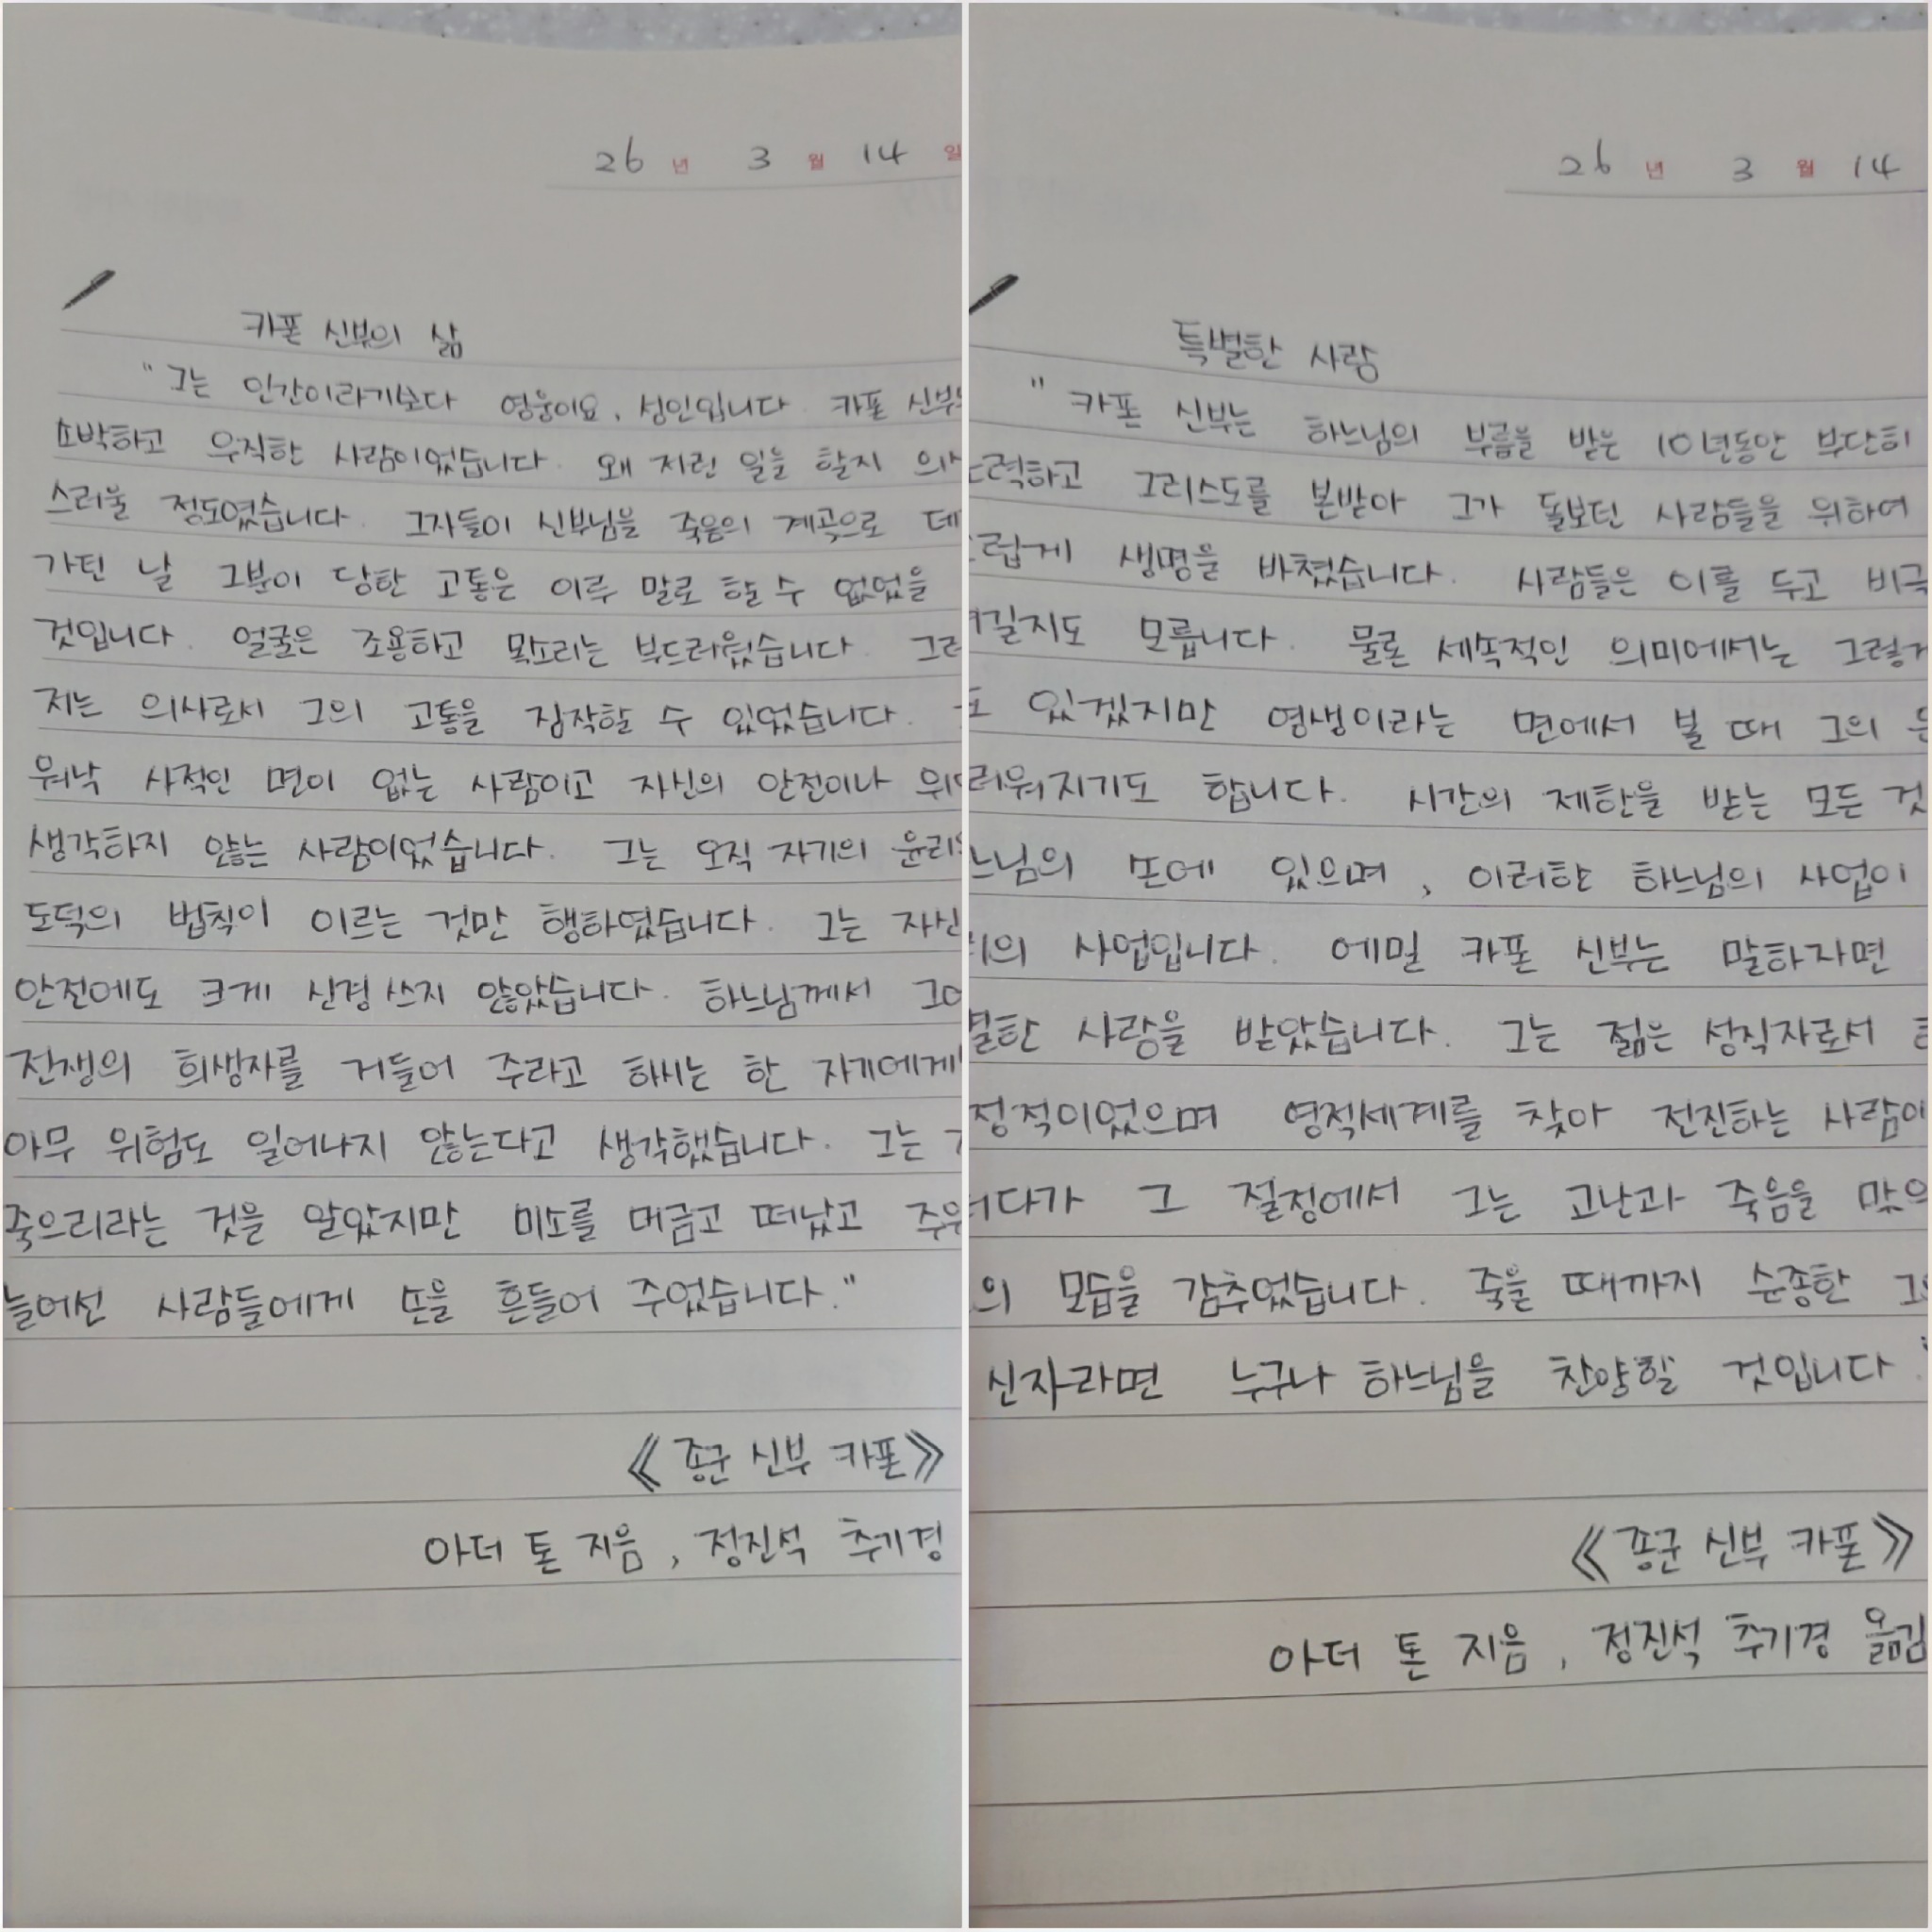 26 년 3 월 14 일
카폰 신부의 삶
" 그는 인간이라기보다 영웅이요, 성인입니다. 카폰 신부
소박하고 우직한 사람이었습니다. 왜 저런 일을 할지 의
스러울 정도였습니다. 그자들이 신부님을 죽음의 계곡으로 데
가던 날 그분이 당한 고통은 이루 말로 할 수 없었을
것입니다. 얼굴은 조용하고 목소리는 부드러웠습니다. 그
저는 의사로서 그의 고통을 짐작할 수 있었습니다.
워낙 사적인 면이 없는 사람이고 자신의 안전이나 위
생각하지 않는 사람이었습니다. 그는 오직 자기의 윤리
도덕의 법칙이 이르는 것만 행하였습니다. 그는 자신
안전에도 크게 신경 쓰지 않았습니다. 하느님께서 그
전쟁의 희생자를 거들어 주라고 하시는 한 자기에게
아무 위험도 일어나지 않는다고 생각했습니다. 그는
죽으리라는 것을 알았지만 미소를 머금고 떠났고 주
늘어선 사람들에게 손을 흔들어 주었습니다."
《종군 신부 카폰》
아더 톤 지음, 정진석 추기경
26 년 3 월 14
특별한 사랑
" 카폰 신부는 하느님의 부름을 받은 10년동안 부단히
력하고 그리스도를 본받아 그가 돌보던 사람들을 위하여
럽게 생명을 바쳤습니다. 사람들은 이를 두고 비극
길지도 모릅니다. 물론 세속적인 의미에서는 그렇
도 있겠지만 영생이라는 면에서 볼 때 그의
러워지기도 합니다. 시간의 제한을 받는 모든 것
느님의 손에 있으며, 이러한 하느님의 사업이
의 사업입니다. 에밀 카폰 신부는 말하자면
별한 사랑을 받았습니다. 그는 젊은 성직자로서
정적이었으며 영적세계를 찾아 전진하는 사람이
다가 그 절정에서 그는 고난과 죽음을 맞으
의 모습을 감추었습니다. 죽을 때까지 순종한 그
신자라면 누구나 하느님을 찬양할 것입니다."
《종군 신부 카폰》
아더 톤 지음, 정진석 추기경 옮김